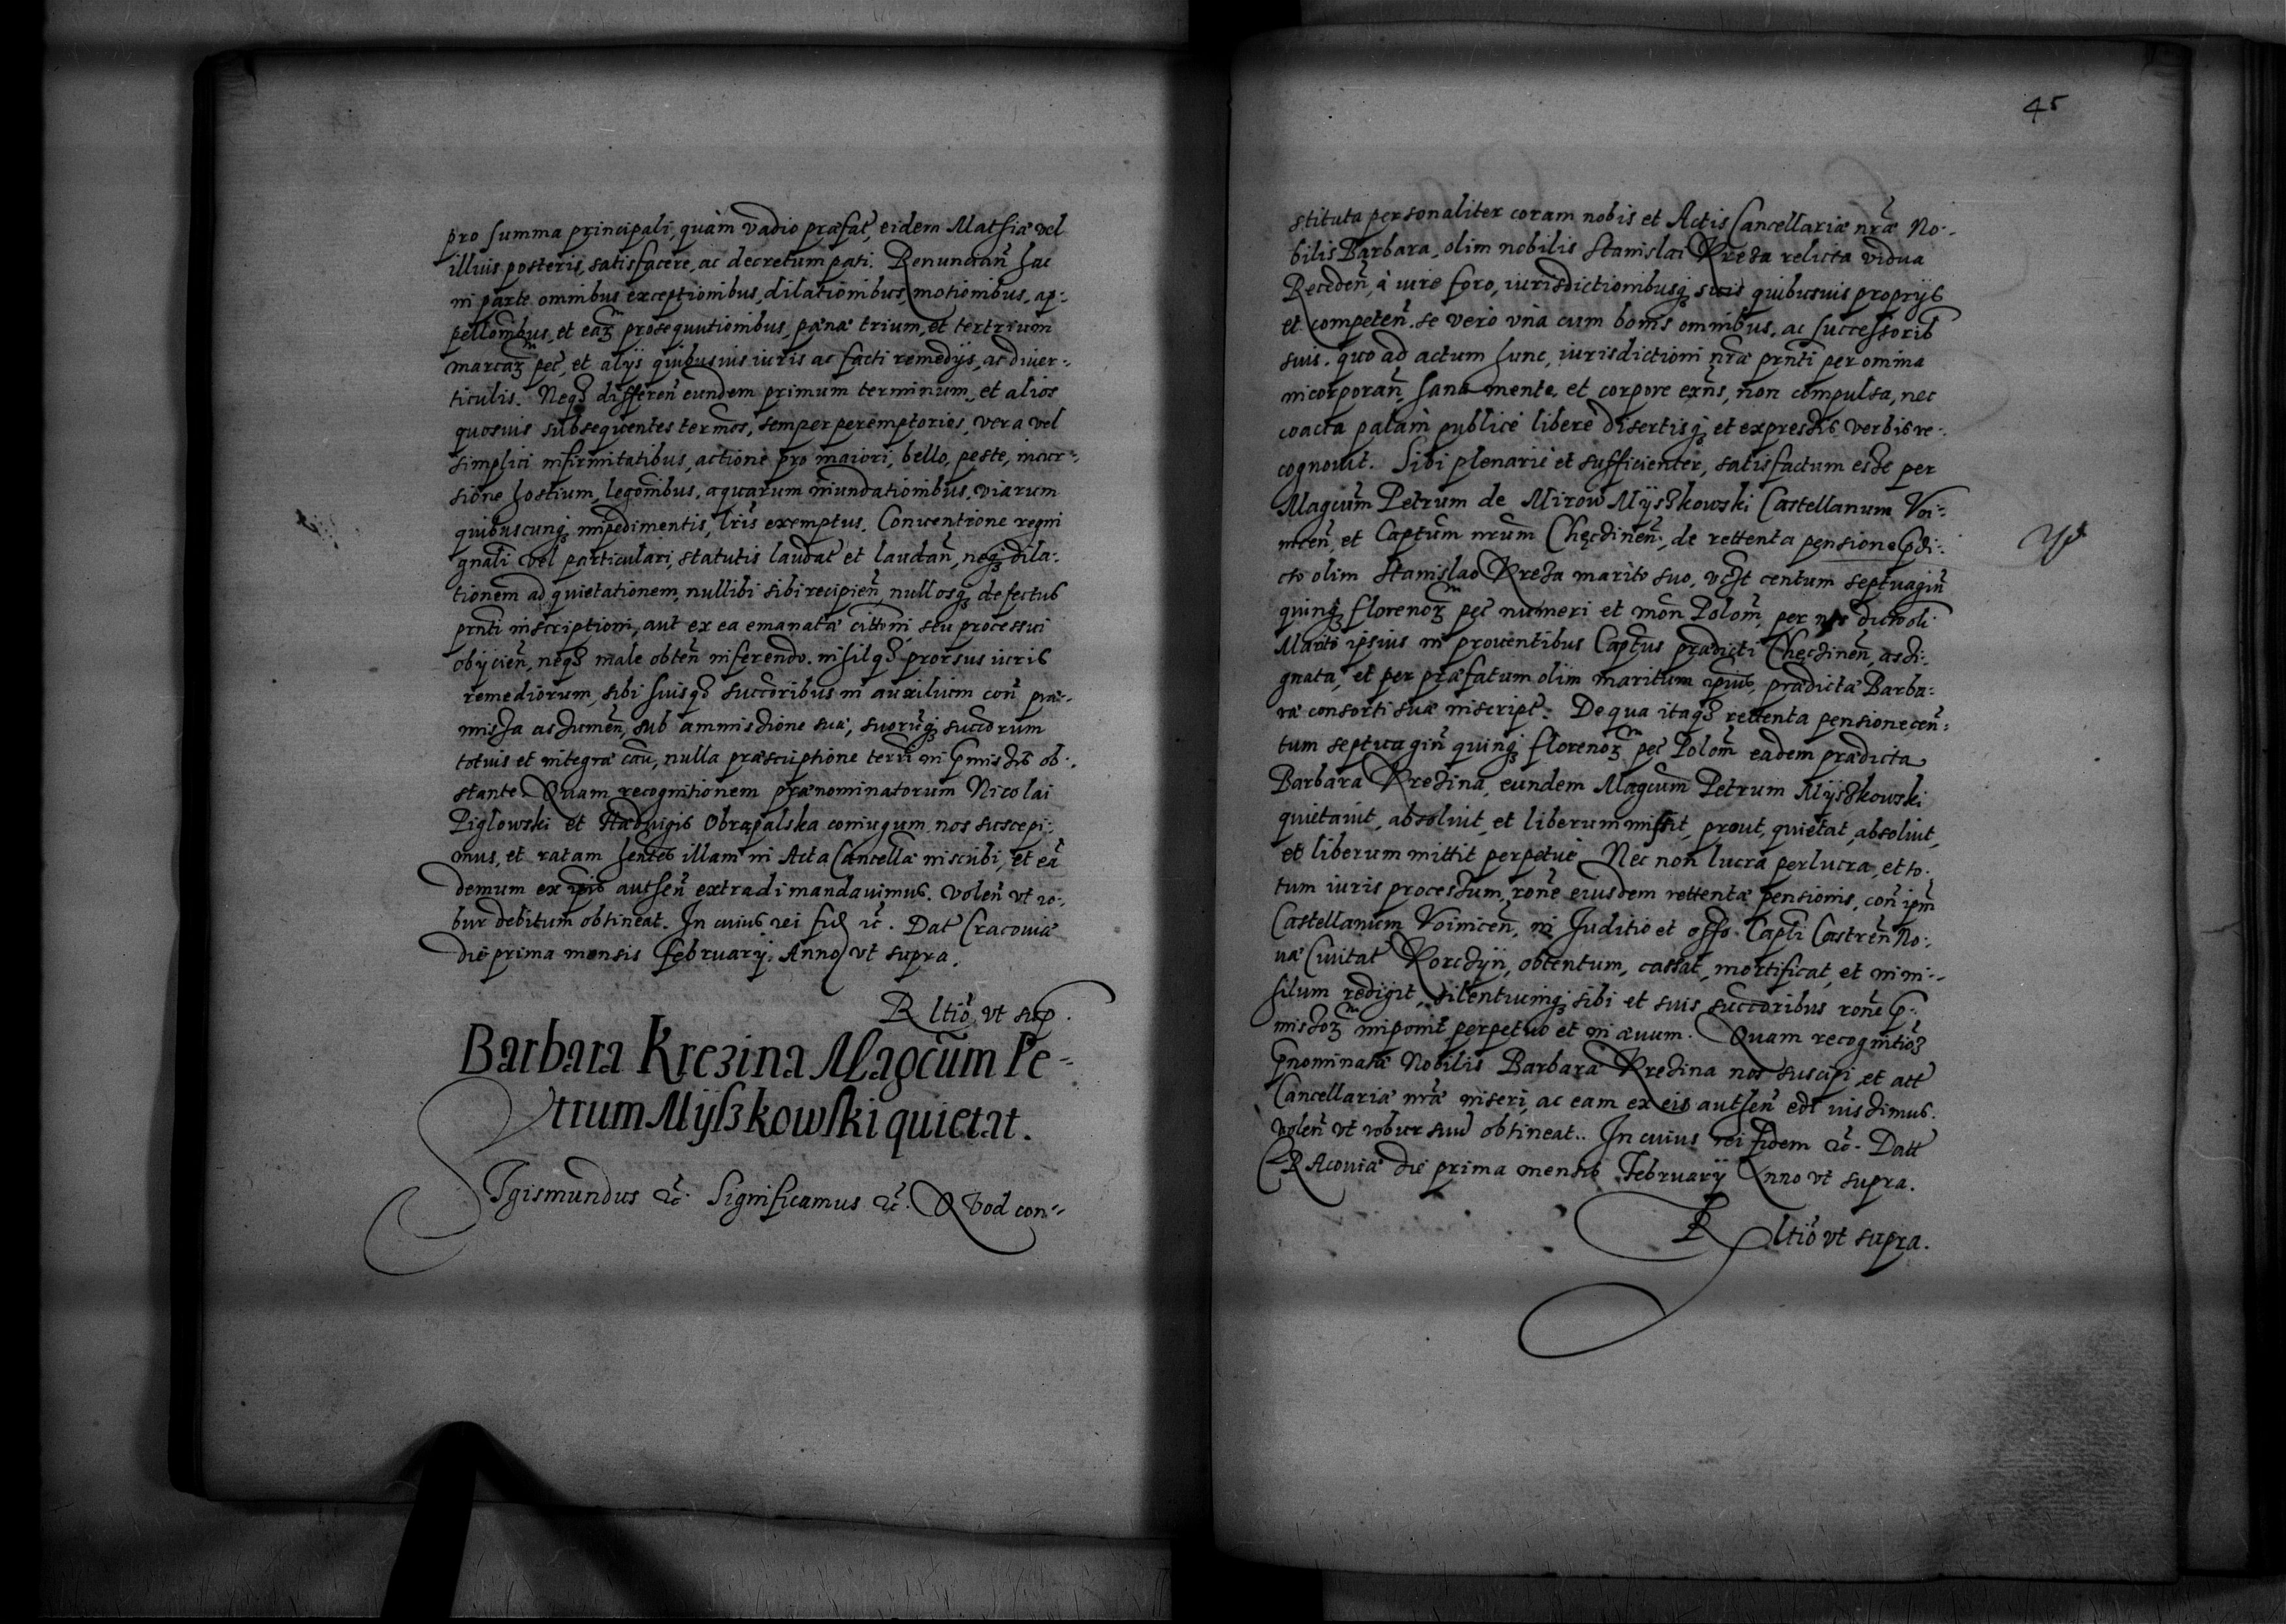 pro summa principali, quàm vadio præfat, eidem Mathiæ vel
illius posteris, satisfacere, ac decretum pati. Renuncian̄ hac
in parte omnibus exceptionibus, dilationibus, motionibus, ap-
pellōnibus, et eaꝝ prosequutionibus, pœnæ trium, et tertrium
marcaꝝ pec̄, et alijs quibusuis iuris ac facti remedijs, ac diuer-
ticulis. Neqꝫ differen̄ eundem primum terminum, et alios
quosuis subsequentes term̄os, semper peremptories, vera vel
simplici infirmitatibus, actione pro maiori, bello, peste, incur-
sione hostium, legōnibus, aquarum inundationibus, viarum
quibuscunqꝫ impedimentis, lr̄is exemptus. Conuentione regni
gnāli vel particulari, statutis laudat et laudan̄, neqꝫ dila-
tionem ad quietationem, nullibi sibi recipien̄, nullosqꝫ defectus
prn̄ti inscriptioni, aut ex ea emanatæ citt̄oni, seu processui
obijcien̄, neqꝫ male obten̄ inferendo. nihilqꝫ prorsus iuris
remediorum, sibi suisqꝫ succ̄oribus in auxilium con̄ præ-
missa assumen̄, sub ammissione suæ, suorūqꝫ succ̄orum
totius et integræ cāu, nulla præscriptione terr̄i in p̄missis ob-
stante. Quam recognitionem prænominatorum Nicolai
Piglowski et Haduigis Obrapalska coniugum nos suscepi-
mus, et ratam hentes illam in Acta Cancellæ inscribi, et eā
demum ex ip̄is authen̄ extradi mandauimus. Volen̄ vt ro-
bur debitum obtineat. In cuius rei fid ꝛc̄. Dat Cracouiæ
die prima mensis februarij. Anno vt supra.
Rltio vt sup.
Barbara Krezina Magcūm Pe-
trum Myſzkowſki quietat.
SIgismundus ꝛc̄. Significamus ꝛc̄. QVod con-
45
stituta personaliter coram nobis et Actis Cancellariæ nr̄æ No-
bilis Barbara, olim nobilis Stanislai Kreza relicta vidua
Receden̄, à iure foro, iurisdictionibusqꝫ suis quibusuis proprijs
et competen̄. se vero vna cum bonis omnibus, ac successorib
suis. quo ad actum hunc, iurisdictioni nr̄æ prn̄ti per omnia
incorporan̄, sana mente, et corpore exn̄s, non compulsa, nec
coacta palàm publicè liberè disertisqꝫ et expressis verbis re-
cognouit. Sibi plenariè et sufficienter, satisfactum esse per
Magcūm Petrum de Mirow Myszkowski Castellanum Voi-
nicen̄, et Captūm nrūm Chęcinen̄, de rettenta pensione p̄di-
cto olim Stanislao Kreza marito suo, vcꝫt centum septuagin̄
quinqꝫ florenoꝝ pec̄ numeri et mōn Polon̄, per dicto oli
Marito ipsius in prouentibus Captūs prædicti Chęczinen̄, assi-
gnata, et per præfatum olim maritum ip̄ius, prædictæ Barba-
ræ consorti suæ inscript. De qua itaqꝫ rettenta pensione cen-
tum septuagin̄ quinqꝫ florenoꝝ pec̄ Polon̄ eadem prædicta
Barbara Krezina, eundem Magcūm Petrum Myszkowski
quietauit, absoluit, et liberum missit, prout, quietat, absoluit,
et liberum mittit perpetuè. Nec non lucra perlucra, et to-
tum iuris processum, rōne eiusdem rettentæ pensionis, con̄ ip̄m
Castellanum Voinicen̄, in Juditio et offo Capt̄i Castren̄ No-
uæ Ciuitat Korczyn̄, obtentum, cassat, mortificat, et in ni-
hilum redigit, silentiumqꝫ sibi et suis succ̄oribus rōne p̄-
missoꝝ imponit perpetuo et in æuum. Quam recognitioꝫ
p̄nominatæ Nobilis Barbaræ Krezina nos suscipi, et att
Cancellariæ nr̄æ inseri, ac eam ex eis authen̄ edi iussimus.
volen̄ vt robur suū obtineat.. In cuius rei fidem ꝛc̄. Datt
CRAcouiæ die prima mensis Februarij Anno vt supra.
Rltio vt supra.